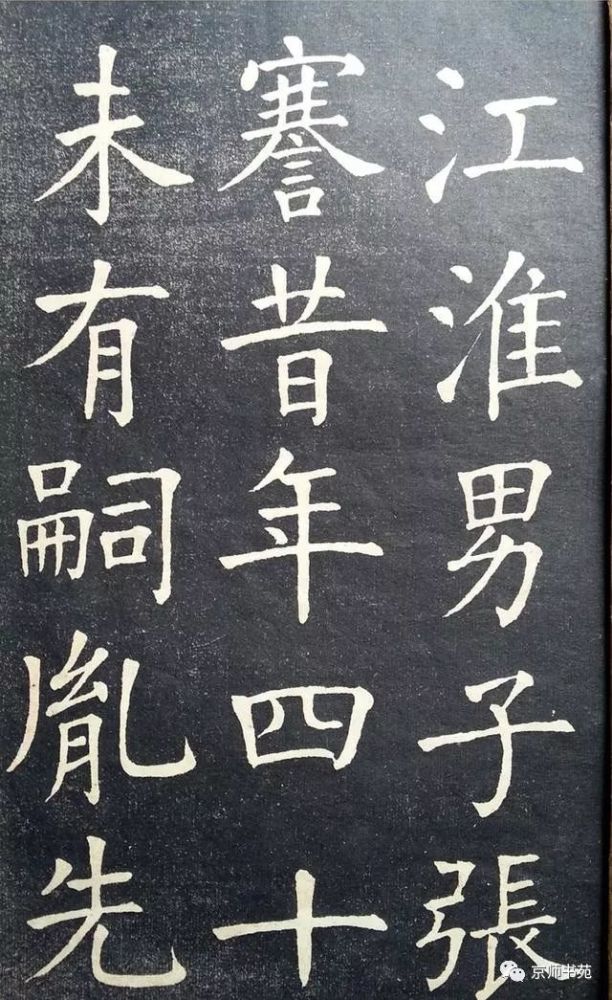 江淮男子張
謇昔年四十
未有嗣胤先
京师书苑